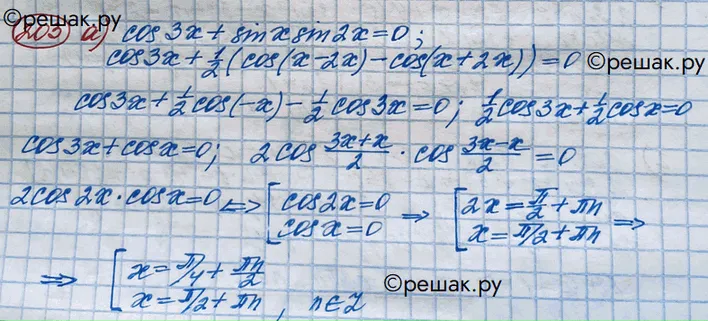 ©решак.ру
203 а) cos3x + sinx sin2x = 0;
cos3x + 1/2(cos(x-2x) - cos(x+2x)) = 0 ©решак.ру
cos3x + 1/2 cos(-x) - 1/2 cos3x = 0; 1/2 cos3x + 1/2 cosx = 0
cos3x + cosx = 0; 2cos (3x+x)/2 · cos (3x-x)/2 = 0
2cos2x · cosx = 0 <=> [ cos2x = 0 cosx = 0 => [ 2x = π/2 + πn x = π/2 + πn =>
=> [ x = π/4 + πn/2 x = π/2 + πn, n∈Z
©решак.ру